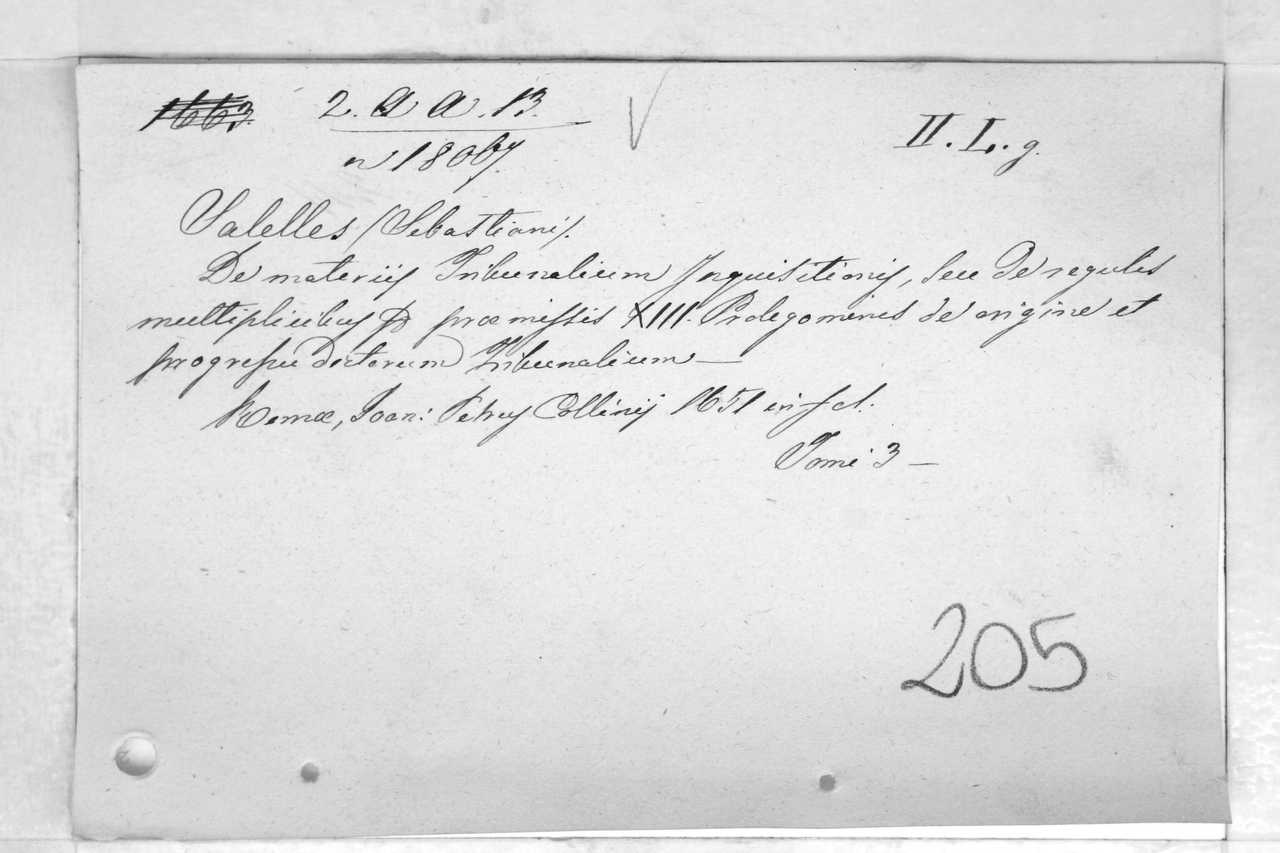 1663. 2. a a. 13. II. L. g.
n 18067.
Salelles (Sebastiani).
De materiis Tribunalium Inquisitionis, seu de regulis
multiplicibus praemissis XIII. Prolegomenis de origine et
progressu dictorum Tribunalium —
Romae, Joan: Petrus Collinij 1651 in fol.
Tomi 3 —
205